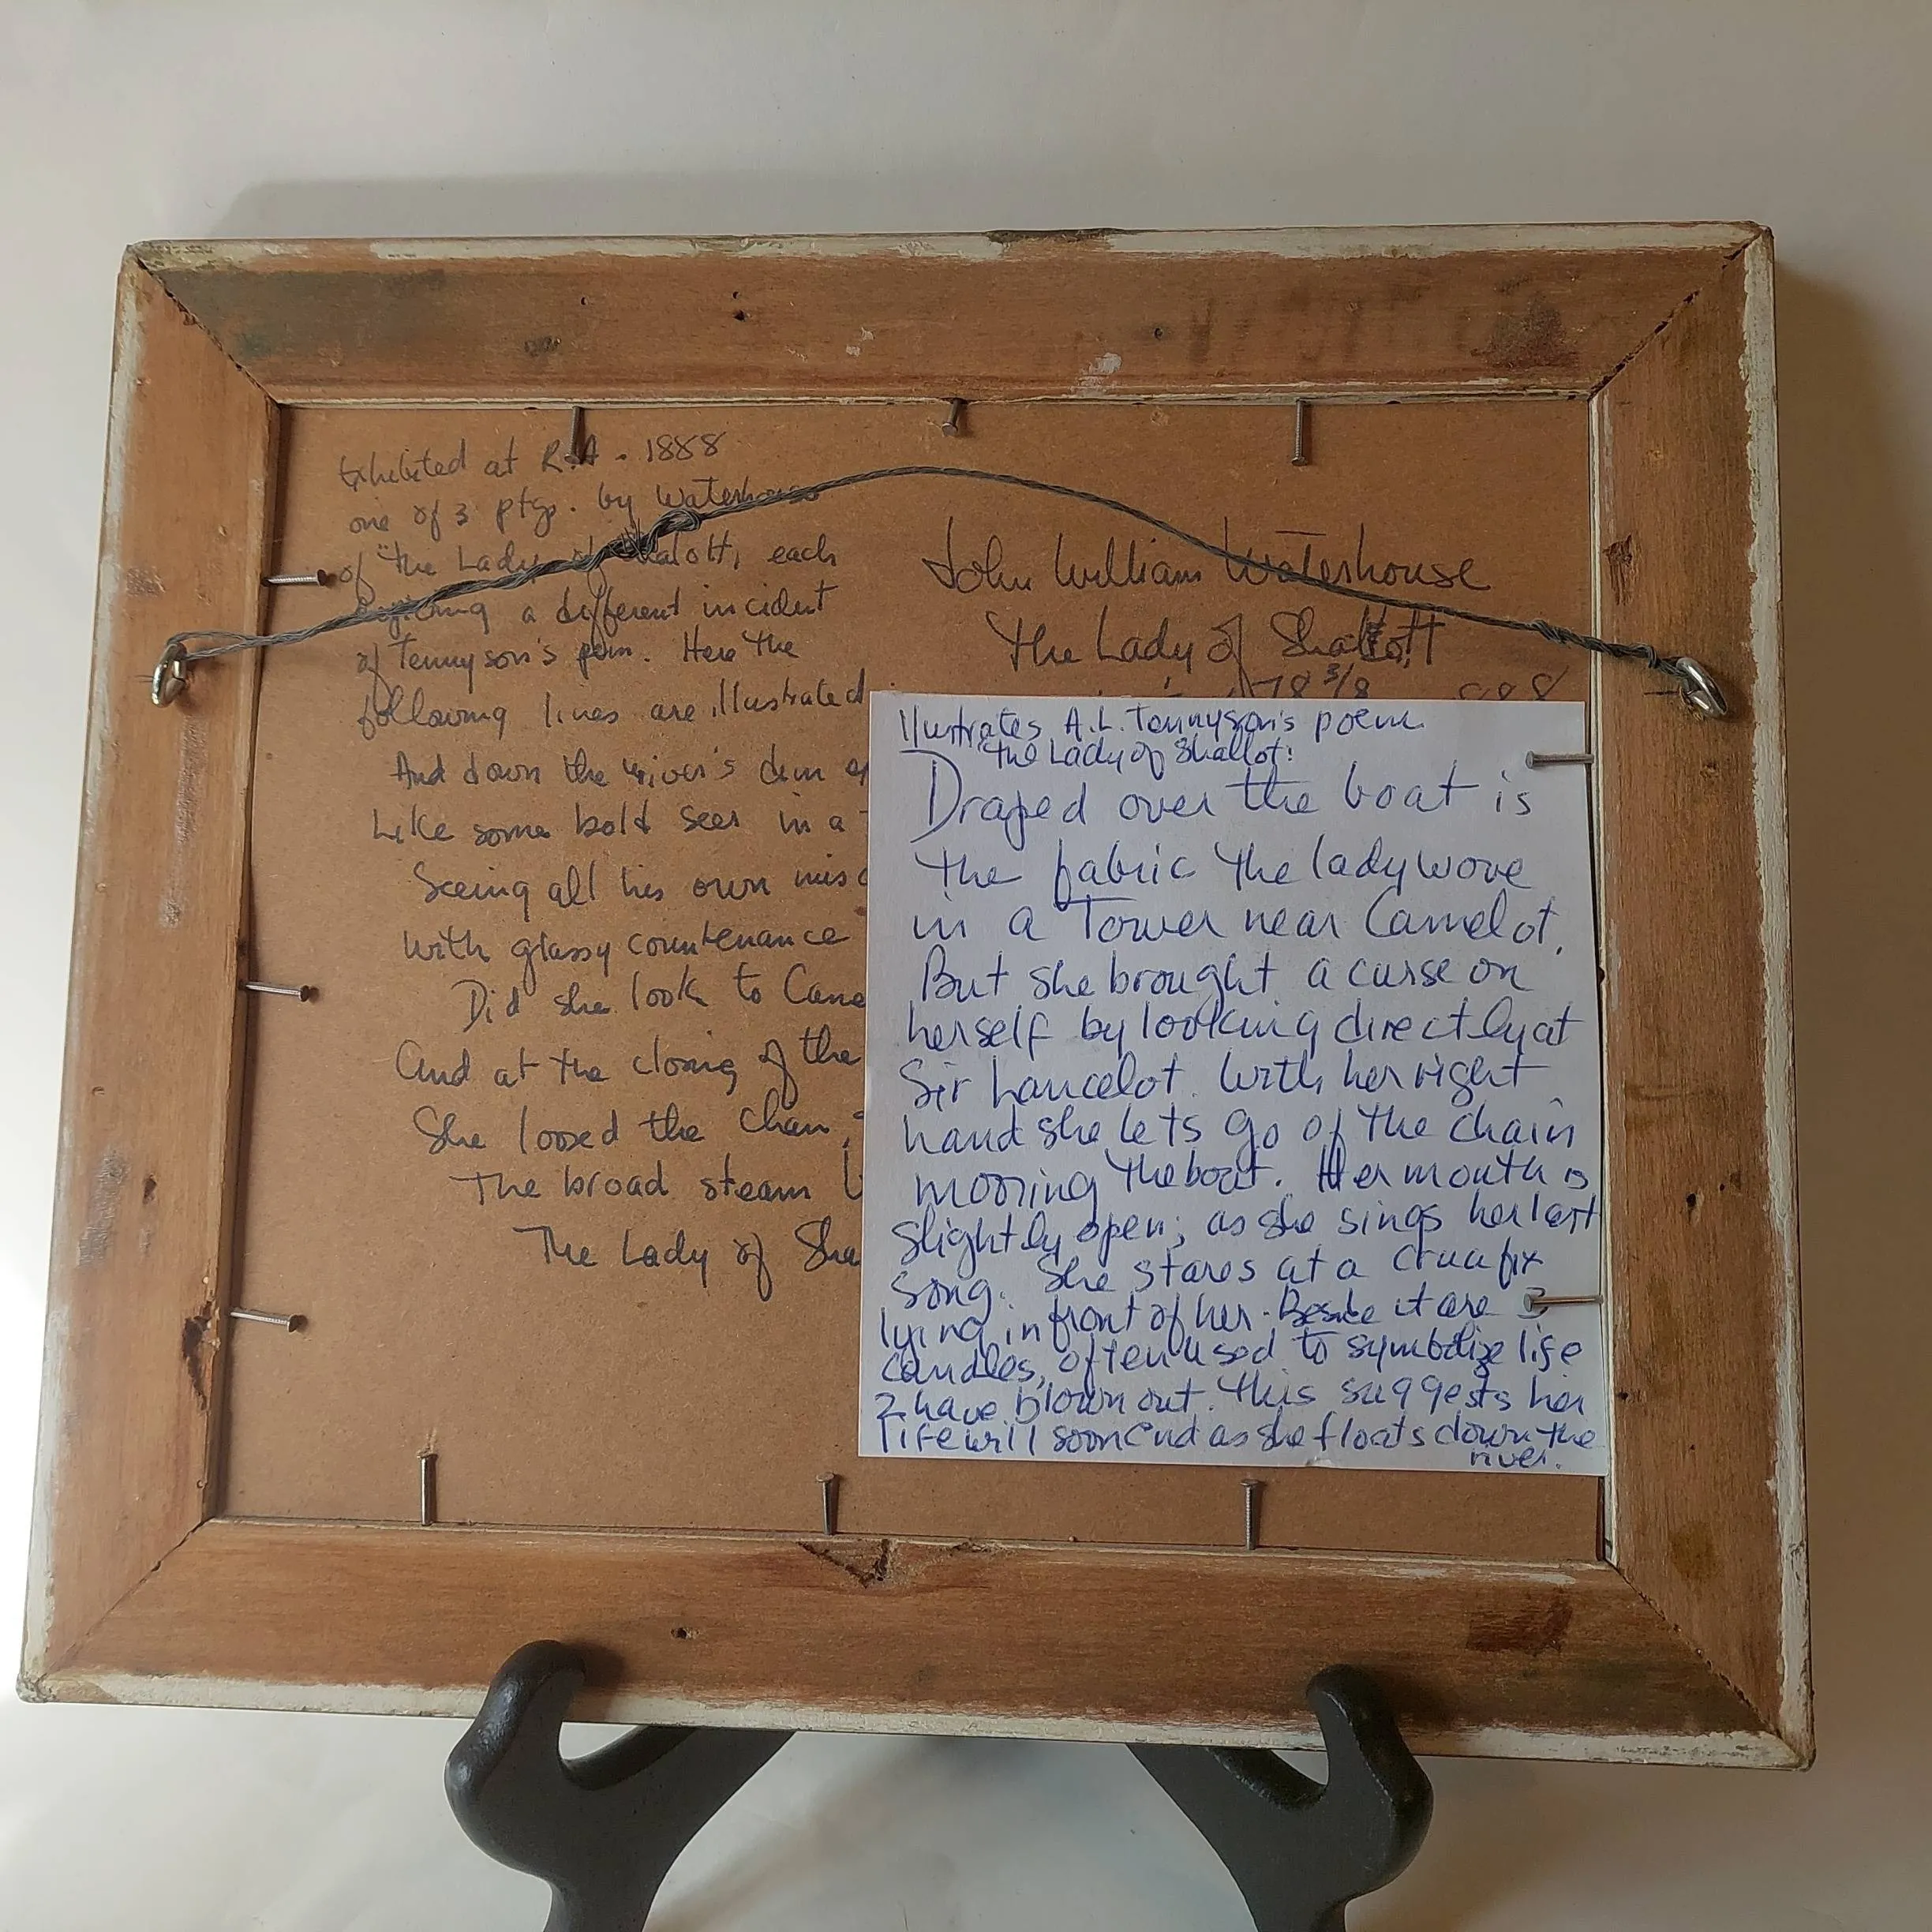 Exhibited at R.A. 1888
one of 3 ptgs. by Waterhouse
of "the Lady of Shalott, each
a different incident
of Tennyson's poem. Here the
following lines are illustrated
And down the river's dim
Like some bold seer in a
Seeing all his own misc
With glassy countenance
Did she look to Came
And at the closing of the
She loosed the chain,
The broad steam
The Lady of Sha
John William Waterhouse
The Lady of Shalott
78 3/8
Illustrates A.L. Tennyson's poem
The Lady of Shallot:
Draped over the boat is
the fabric the lady wove
in a Tower near Camelot.
But she brought a curse on
herself by looking directly at
Sir Lancelot. With her right
hand she lets go of the chain
mooring the boat. Her mouth is
slightly open; as she sings her last
song. She stares at a crucifix
lying in front of her. Beside it are 3
candles, often used to symbolize life
2 have blown out. This suggests her
life will soon end as she floats down the
river.